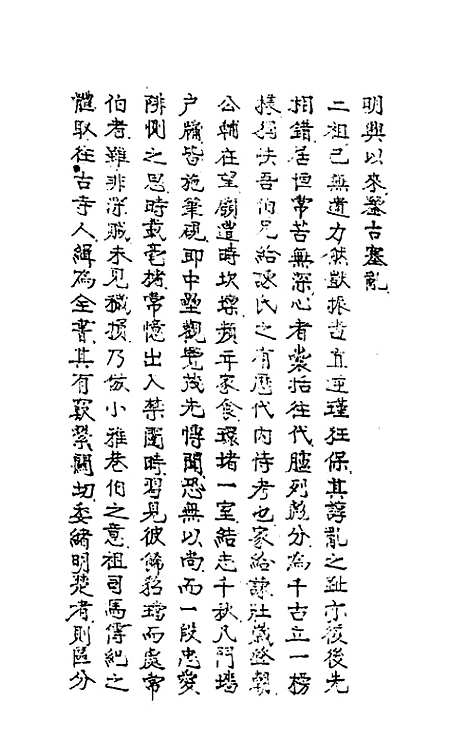 明興以來鑒古塞亂
二祖已無遺力然獸振昔直王瑾狂保其諄亂之趾亦後後先
相錯居恒常苦無深心者裳括往代臚列彪分為千古立一榜
樣獨快吾伯兄給諫氏之有歷代內侍考也家給諫壯歲登朝
公輔在望嗣遭時坎壈頻年家食環堵一室結志千秋凡門墻
户牖皆施筆硯即中壘觀覽茂先博聞恐無以尚而一段忠愛
陫惻之思時載毫楮常憶出入禁闥時習見彼飾貂璫而處常
伯者雖非深賊未見穢損乃倣小雅巷伯之意祖司馬傳紀之
體取往古寺人緝為全書其有窾綮關切委緒明楚者則區分